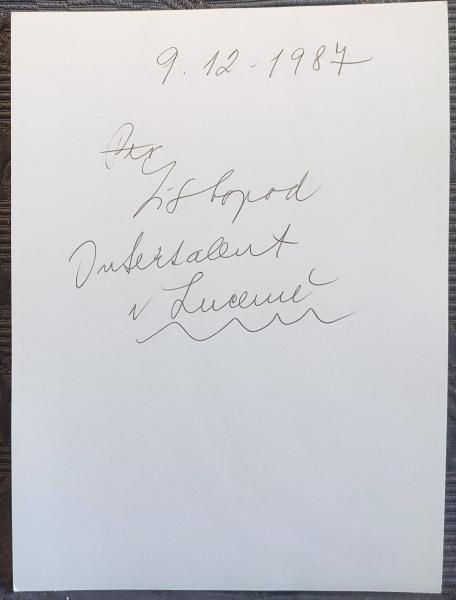 9. 12 - 1987
Listopod
Intertalent
v Lucerně